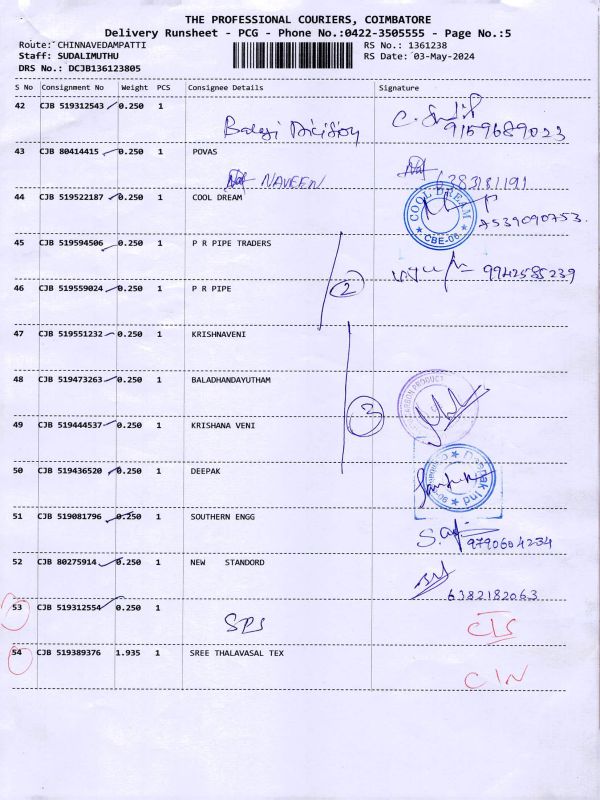 THE PROFESSIONAL COURIERS, COIMBATORE
Delivery Runsheet - PCG - Phone No.:0422-3505555 - Page No.:5
Route: CHINNAVEDAMPATTI RS No.: 1361238
Staff: SUDALIMUTHU RS Date: 03-May-2024
DRS No.: DCJB136123805
S No Consignment No Weight PCS Consignee Details Signature
42 CJB 519312543 0.250 1
9159689023
43 CJB 80414415 0.250 1 POVAS
NAVEEN 6383181191
44 CJB 519522187 0.250 1 COOL DREAM
COOL DREAM
CBE-06
45 CJB 519594506 0.250 1 P R PIPE TRADERS
2 9942585239
46 CJB 519559024 0.250 1 P R PIPE
47 CJB 519551232 0.250 1 KRISHNAVENI
48 CJB 519473263 0.250 1 BALADHANDAYUTHAM
3
49 CJB 519444537 0.250 1 KRISHANA VENI
50 CJB 519436520 0.250 1 DEEPAK
51 CJB 519081796 0.250 1 SOUTHERN ENGG
9790604234
52 CJB 80275914 0.250 1 NEW STANDORD
6382182063
53 CJB 519312554 0.250 1
SPS CTS
54 CJB 519389376 1.935 1 SREE THALAVASAL TEX
CIN